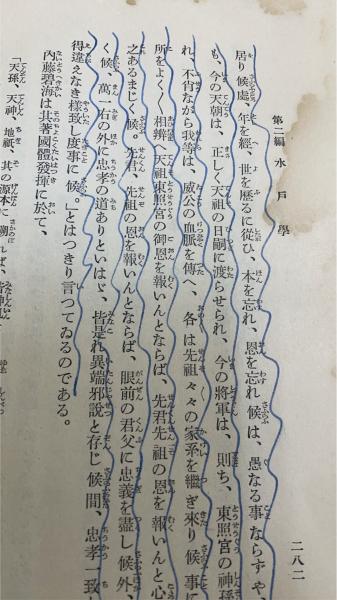 第二編 水戸學
二八二
居り候處、年を經、世を歷るに從ひ、本を忘れ、恩を忘れ候は、愚なる事ならずや、
も、今の天朝は、正しく天祖の日嗣に渡らせられ、今の將軍は、則ち、東照宮の神孫
れ、不肖ながら我等は、威公の血脈を傳へ、各は先祖々々の家系を繼ぎ來り候事に
所をよく〳〵相辨へ天祖東照宮の御恩を報いんとならば、先君先祖の恩を報いんと心
之あるまじく候。先君、先祖の恩を報いんとならば、眼前の君父に忠義を盡し候外、
く候、萬一右の外に忠孝の道ありといはゞ、皆是れ異端邪說と存じ候間、忠孝一致
得違えなき樣致し度事に候。」とはつきり言つてゐるのである。
內藤碧海は其著國體發揮に於て、
「天孫、天神、地祇、其の源本に